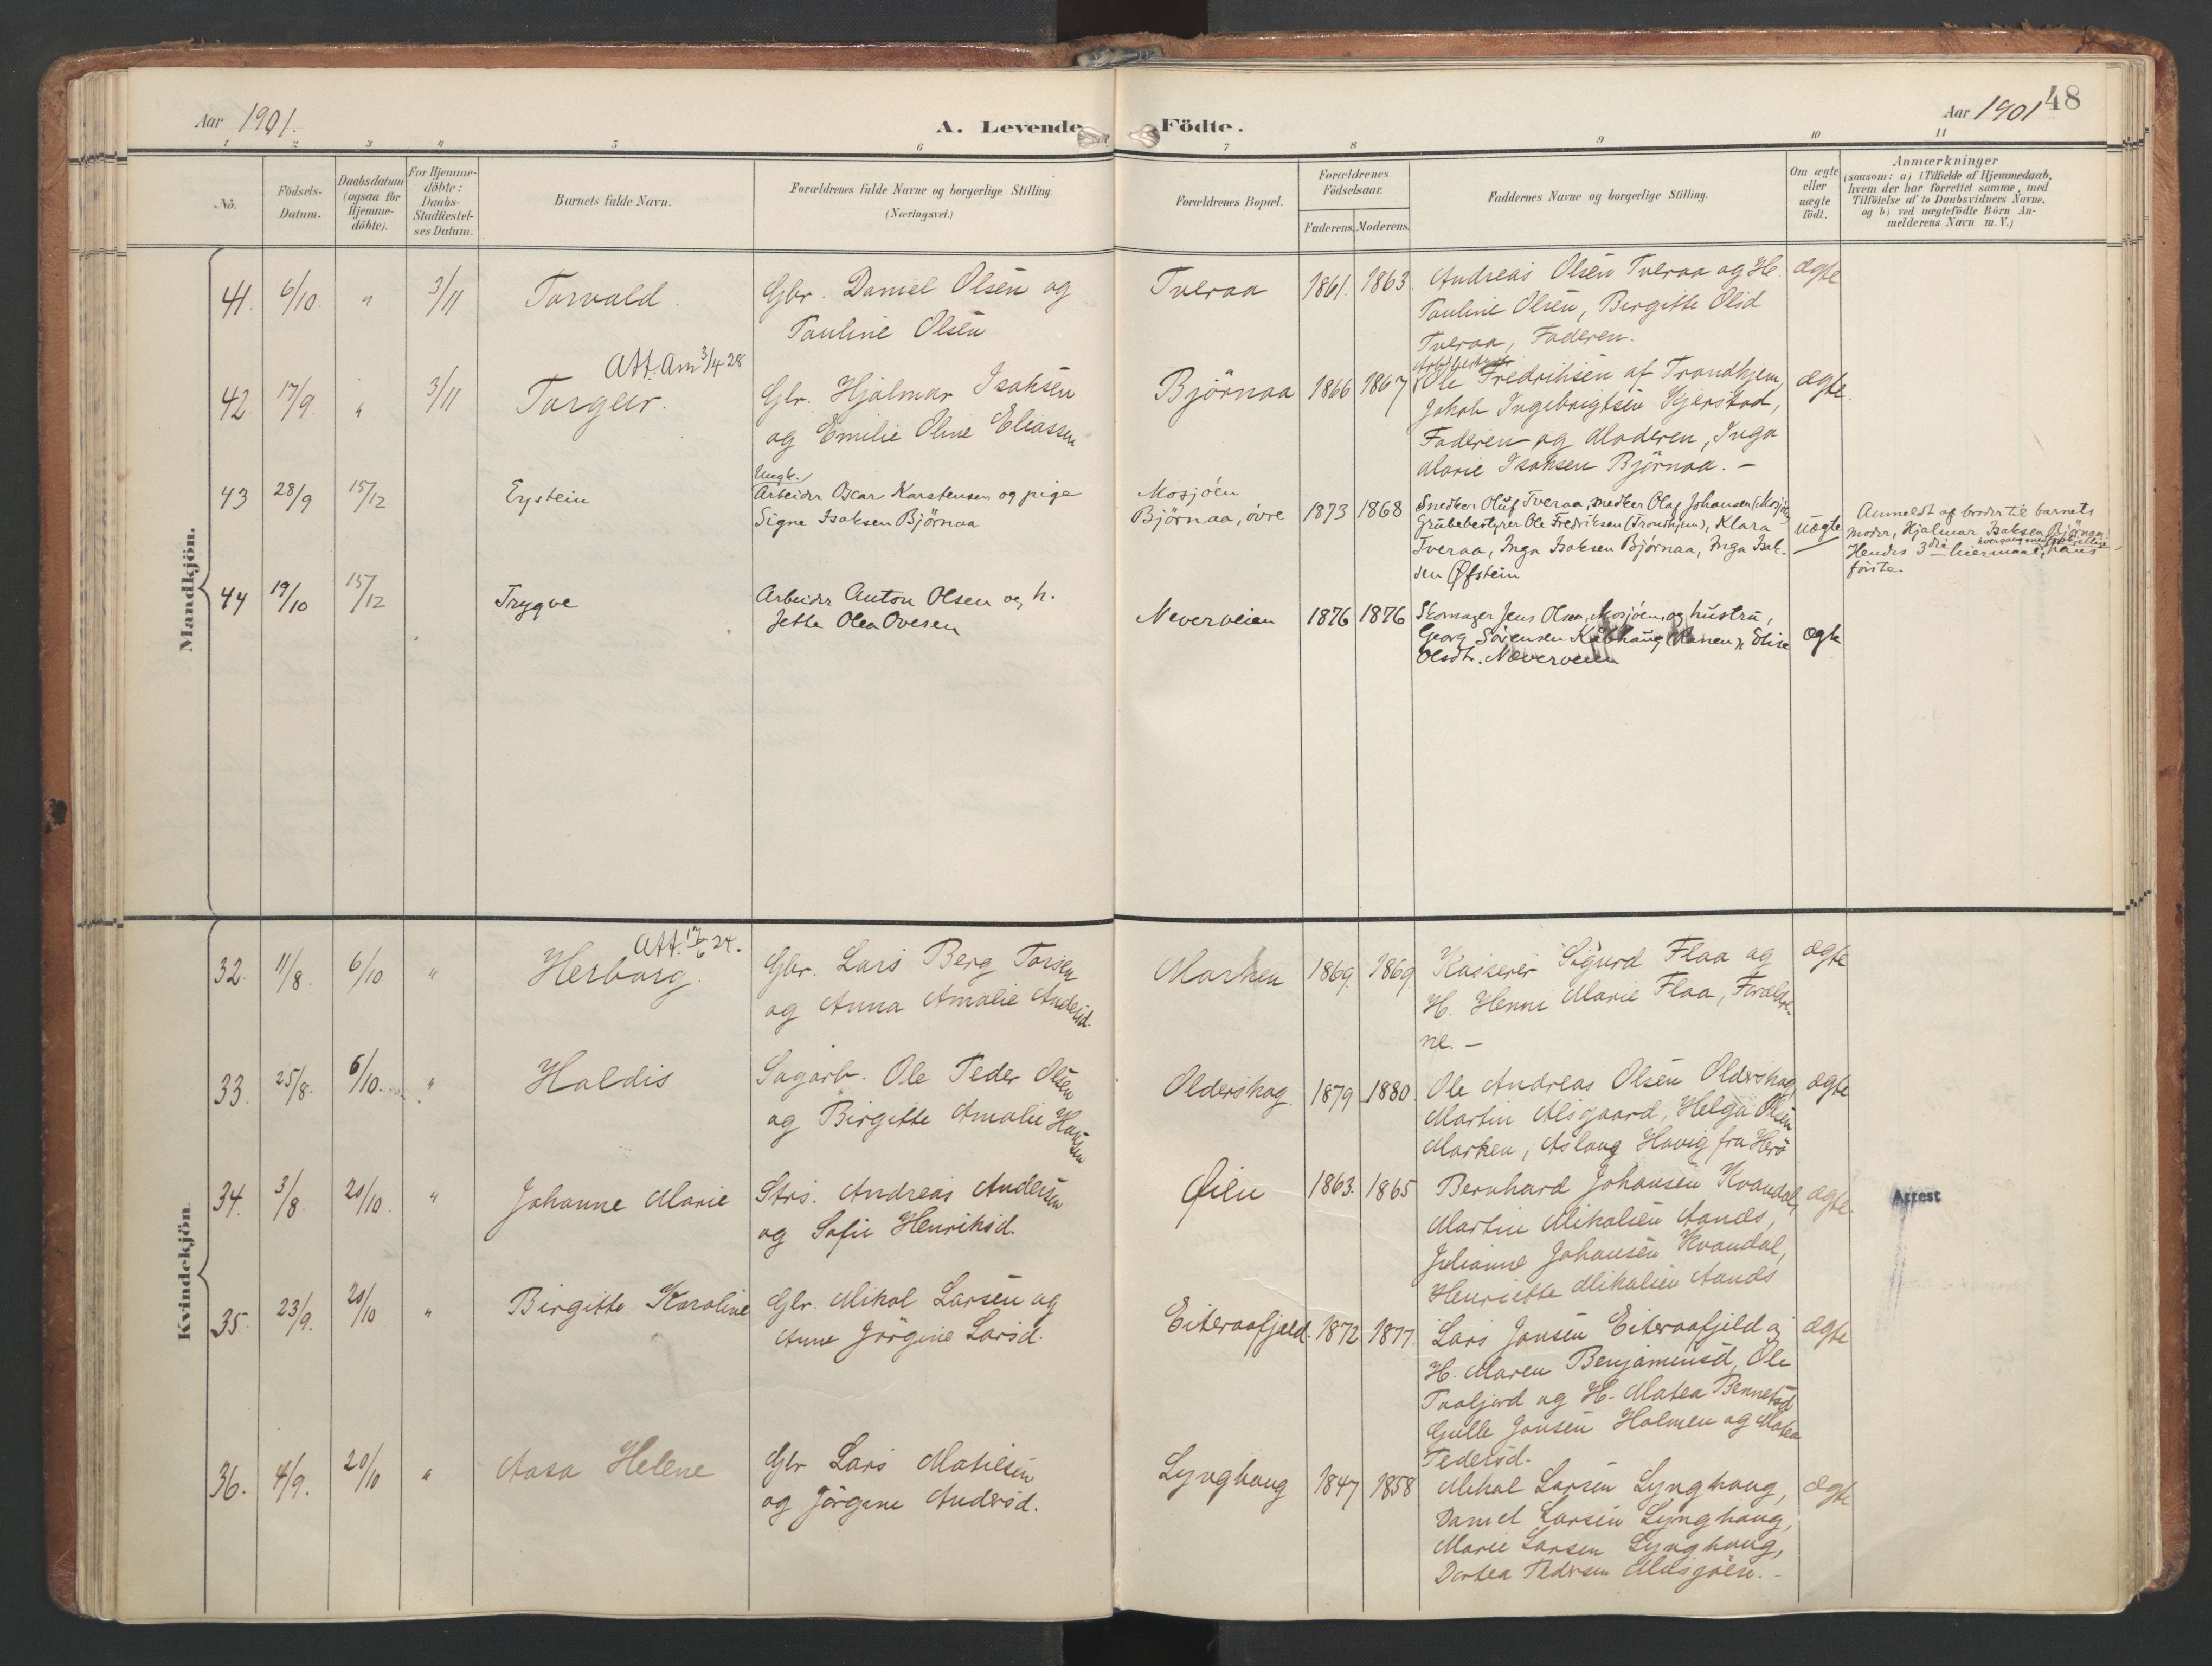 Aar 1901.
A. Levende Födte.
Aar 1901
48
1 2 3 4 5 6 7 8 9 10 11
No.
Födsels-
Datum.
Daabsdatum
(ogsaa for
Hjemme-
döbte).
For Hjemme-
döbte:
Daabs-
Stadfæstel-
ses Datum.
Barnets fulde Navn.
Forældrenes fulde Navne og borgerlige Stilling.
(Næringsvei.)
Forældrenes Bopæl.
Forældrenes
Födselsaar.
Faderens. Moderens.
Faddernes Navne og borgerlige Stilling.
Om ægte
eller
uægte
födt.
Anmærkninger
(saasom: a) i Tilfælde af Hjemmedaab,
hvem der har forrettet samme, med
Tilföielse af to Daabsvidners Navne.
og b) ved uægtefödte Börn An-
melderens Navn m. V.)
Mandkjön.
41. 6/10. " 3/11 Torvald.
Gbr. Daniel Olsen og
Pauline Olsen
Tveraa 1861. 1863.
Andreas Olsen Tveraa og H.
Pauline Olsen, Birgitte Olsd
Tveraa, Faderen.
ægte
Att. Am 3/4 28
42. 17/9. " 3/11 Torgeir.
Gbr. Hjalmar Isaksen
og Emilie Oline Eliassen
Björnaa 1866 1867
Ole Fredriksen af Trondhjem,
Jakob Ingebrigtsen Kjerstad,
Faderen og Moderen, Inga
Marie Isaksen Björnaa. –
ægte
43 28/9 15/12 Eystein
Ungk.
Arbeider Oscar Karstensen og pige
Signe Isaksen Björnaa
Mosjöen
Björnaa, övre 1873 1868
Snedker Oluf Tveraa, snedker Olaf Johansen (Mosjöen)
Grubebestyrer Ole Fredriksen (Trondhjem), Klara
Tveraa, Inga Isaksen Björnaa, Inga Isak-
sen Øfstein
uægte
Anmeldt af broder til barnets
moder, Hjalmar Isaksen Björnaa.
Hendes 3die leiermaal, hans
förste.
44 19/10 15/12 Trygve
Arbeider Anton Olsen og h.
Jette Olea Ovesen
Neverveien 1876 1876
Skomager Jens Olsen, Mosjöen, og hustru,
Georg Sörensen Kobhaug (Ranen), Elise
Olsdt. Næverveien
ægte
Kvindekjön.
Att. 17/6 24.
32. 11/8. 6/10 " Herborg.
Gbr. Lars Berg Torsen
og Anna Amalie Andersd.
Marken 1869. 1869
Kasserer Sigurd Flaa og
H. Henni Marie Flaa, Forældre-
ne. –
ægte
33. 25/8. 6/10. " Haldis
Sagarb. Ole Peder Olsen
og Birgitte Amalie Hansen
Olderskog. 1879 1880.
Ole Andreas Olsen Olderskog,
Martin Alsgaard, Helga Olsen
Marken, Aslaug Havig fra Herö
ægte
34. 3/8. 20/10. " Johanne Marie
Strs. Andreas Andersen
og Sofie Henriksd.
Øien 1863. 1865
Bernhard Johansen Kvandal,
Martin Mikalsen Aanes,
Julianne Johansen Kvandal,
Henriette Mikalsen Aanes
ægte.
Attest
35. 23/9. 20/10 " Birgitte Karoline
Gbr. Mikal Larsen og
Anne Jörgine Larsd.
Eiteraafjeld. 1872 1877.
Lars Jonsen Eiteraafjeld og
H. Maren Benjaminsd, Ole
og H. Matea Bennetsd
Gulle Jonsen Holmen og Matea
Pedersd.
ægte
36. 4/9. 20/10 " Aasa Helene
Gbr Lars Matiesen
og Jörgine Andersd.
Lynghaug 1847 1858
Mikal Larsen Lynghaug,
Daniel Larsen Lynghaug,
Marie Larsen Lynghaug,
Dortea Pedersen Mosjöen. –
ægte